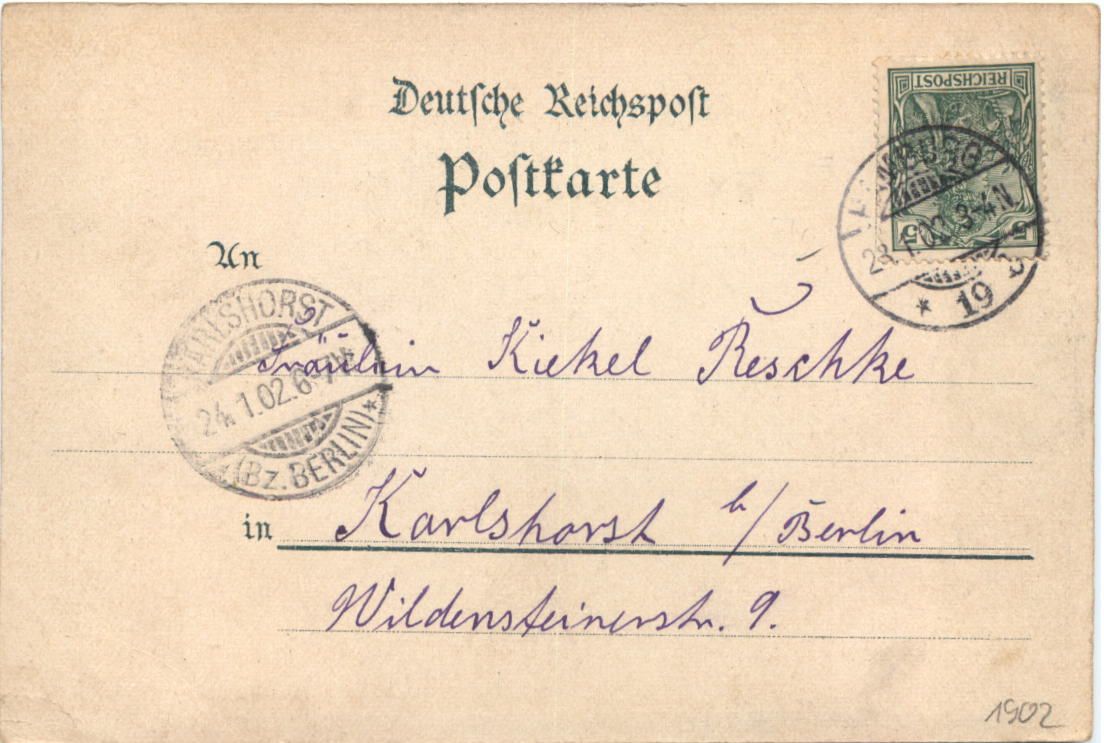 Deutsche Reichspost
Postkarte
REICHSPOST
5 5
HAMBURG
1.02. 3-4N
* 19
An
KARLSHORST
24.1.02.6-7V.
(Bz. BERLIN) *
Fräulein Kiekel Reschke
in Karlshorst b/Berlin
Wildensteinerstr. 9.
1902